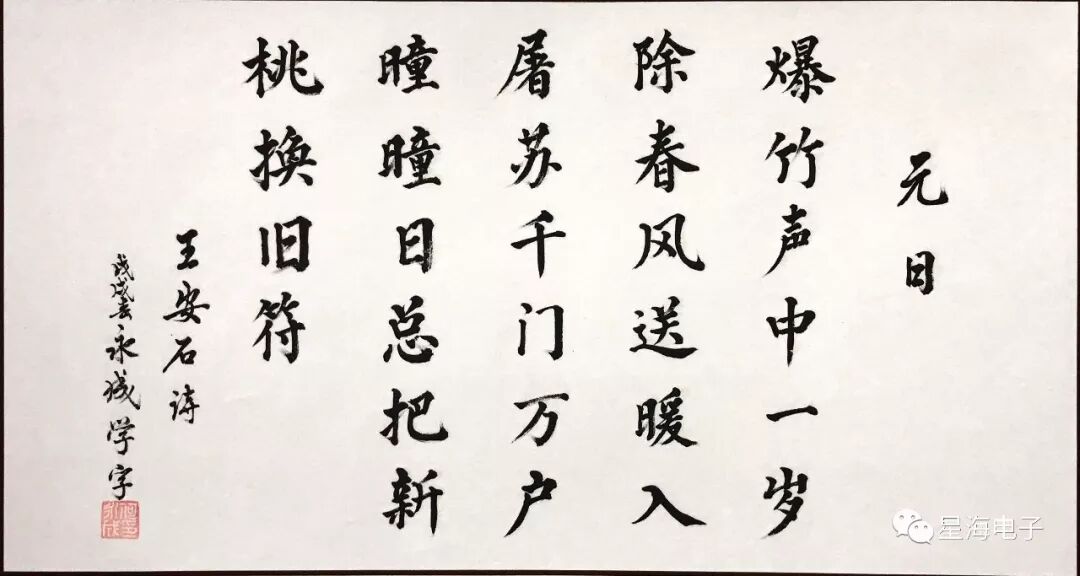 元日
爆竹声中一岁
除春风送暖入
屠苏千门万户
曈曈日总把新
桃换旧符
王安石诗
戊戌永成学字
星海电子